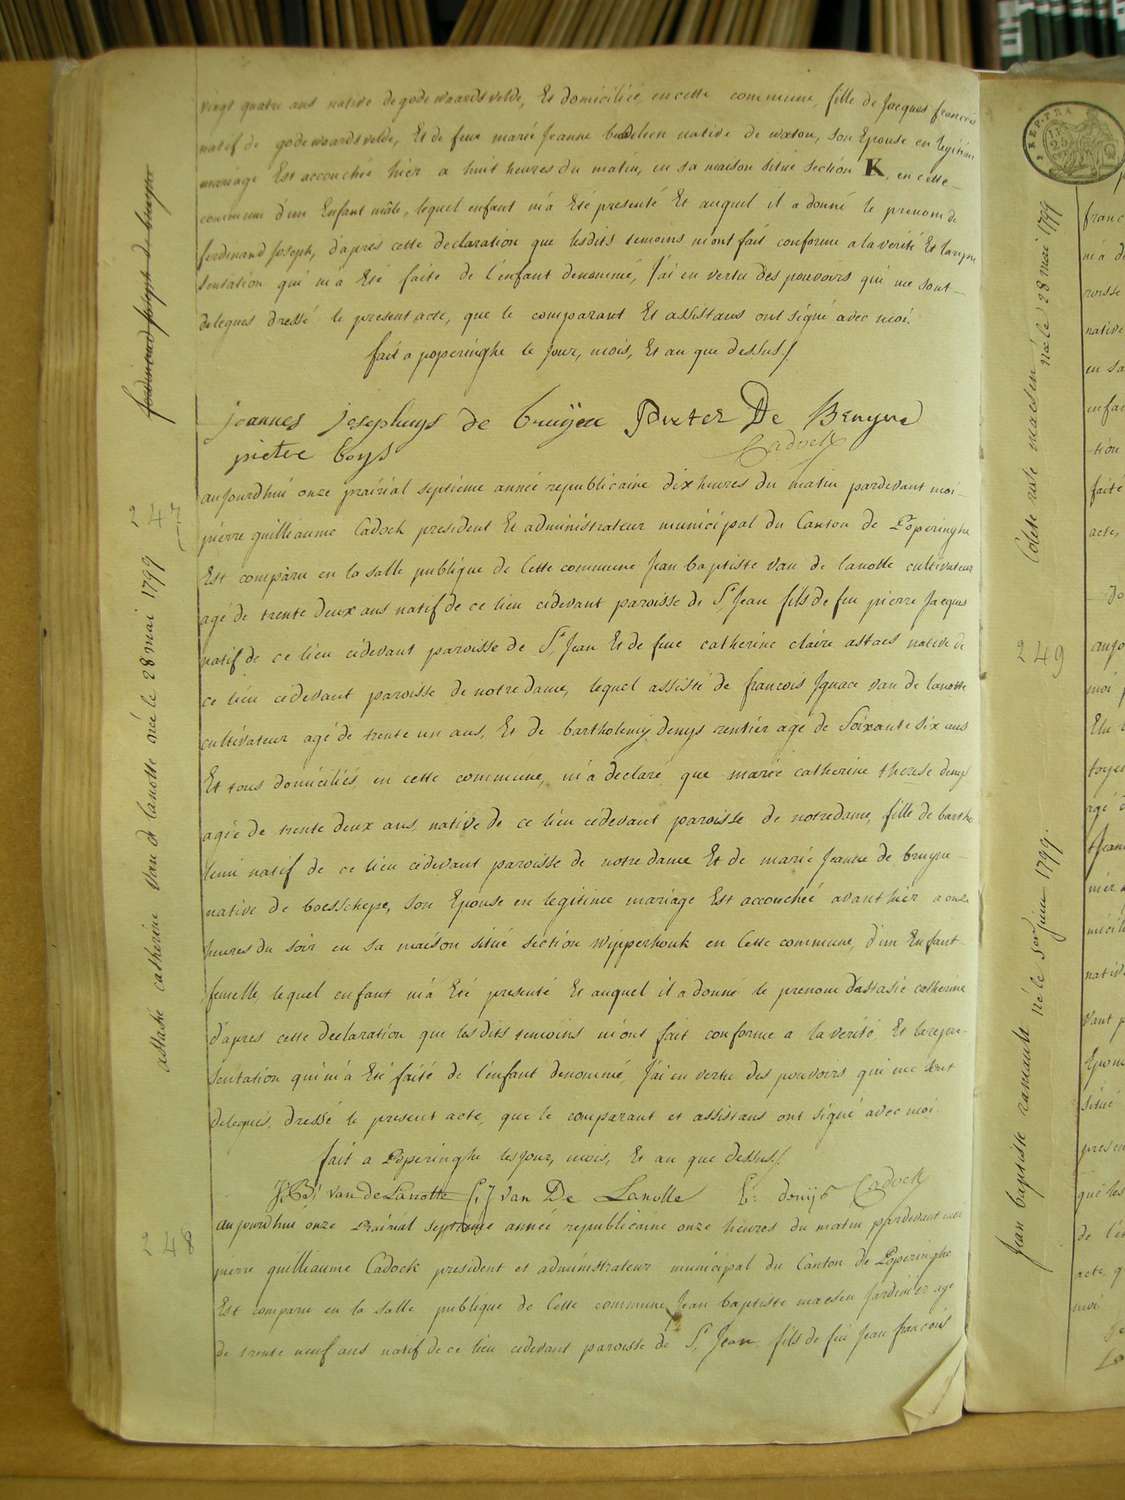 vingt quatre ans native de godewaardsvelde, Et domiciliée en cette commune, fille de Jacques francois
natif de godewaardsvelde, Et de feue marie Jeanne native de waton, son Epouse en legitime
mariage Est accouchée hier a huit heures du matin, en sa maison situé section K, en cette
commune d'un Enfant mâle, lequel enfant m'a Eté presenté Et auquel il a donné le prenom de
ferdinand Joseph, d'apres cette declaration que lesdits temoins m'ont fait conforme a la verité Et la repre
sentation qui m'a Eté faite de l'enfant denommé, J'ai en vertu des pouvoirs qui me sont
delegues dressé le present acte, que le comparant Et assistans ont signé avec moi.
fait a poperinghe le jour, mois, Et an que dessus /
ferdinand joseph de bruyne
joannes josephuys de bruijne Pieter De Bruyne
pieter boys Cadock
247
attasie catherine van de lanotte née le 28 mai 1799
aujourdhui onze prairial septieme année republicaine dix heures du matin pardevant moi
pierre guilliaume Cadock president Et administrateur municipal du Canton de Poperinghe
Est comparu en la salle publique de Cette commune Jean baptiste van de lanotte cultivateur
agé de trente deux ans natif de ce lieu cidevant paroisse de St Jean fils de feu pierre Jacques
natif de ce lieu cidevant paroisse de St Jean Et de feue catherine claire astaes native de
ce lieu cidevant paroisse de notre dame, lequel assisté de francois Ignace van de lanotte
cultivateur agé de trente un ans, Et de bartholemij denys rentier agé de Soixante six ans
Et tous domiciliés en cette commune, m'a declaré que marie catherine therese denys
agée de trente deux ans native de ce lieu cidevant paroisse de notredame, fille de barthe
lemi natif de ce lieu cidevant paroisse de notre dame Et de marie Jeanne de bruyne
native de boesschepe, son Epouse en legitime mariage Est accouchée avant hier a onze
heures du soir en sa maison situé section wipperhouk en Cette commune, d'un Enfant
femelle, lequel enfant m'a Eté presenté Et auquel il a donné le prenom dastasie catherine
d'apres cette declaration que lesdits temoins m'ont fait conforme a la verité Et la repre
sentation qui m'a Eté faite de l'enfant denommé, J'ai en vertu des pouvoirs qui me sont
delegues, dressé le present acte, que le comparant et assistans ont signé avec moi
fait a Poperinghe les jour, mois, Et an que dessus /
J. Bt van de Lanotte f: J van De Lanotte B: denijs Cadock
248
aujourdhui onze Prairial septieme année republicaine onze heures du matin pardevant moi
pierre guilliaume Cadock president et administrateur municipal du Canton de Poperinghe
Est comparu en la salle publique de Cette commune Jean baptiste maesen Jardinier agé
de trente neuf ans natif de ce lieu cidevant paroisse de St Jean fils de feu Jean francois
1799
née le 28 mai
maesen
249
Jean baptiste ramault né le 1799.
franc
m'a d
roisse
native
en sa
enfan
tion
faite
acte,
aujo
moi p
toyen
agé d
Jean
nativ
vant p
Epou
situé
presen
que les
de l'en
acte, q
moi